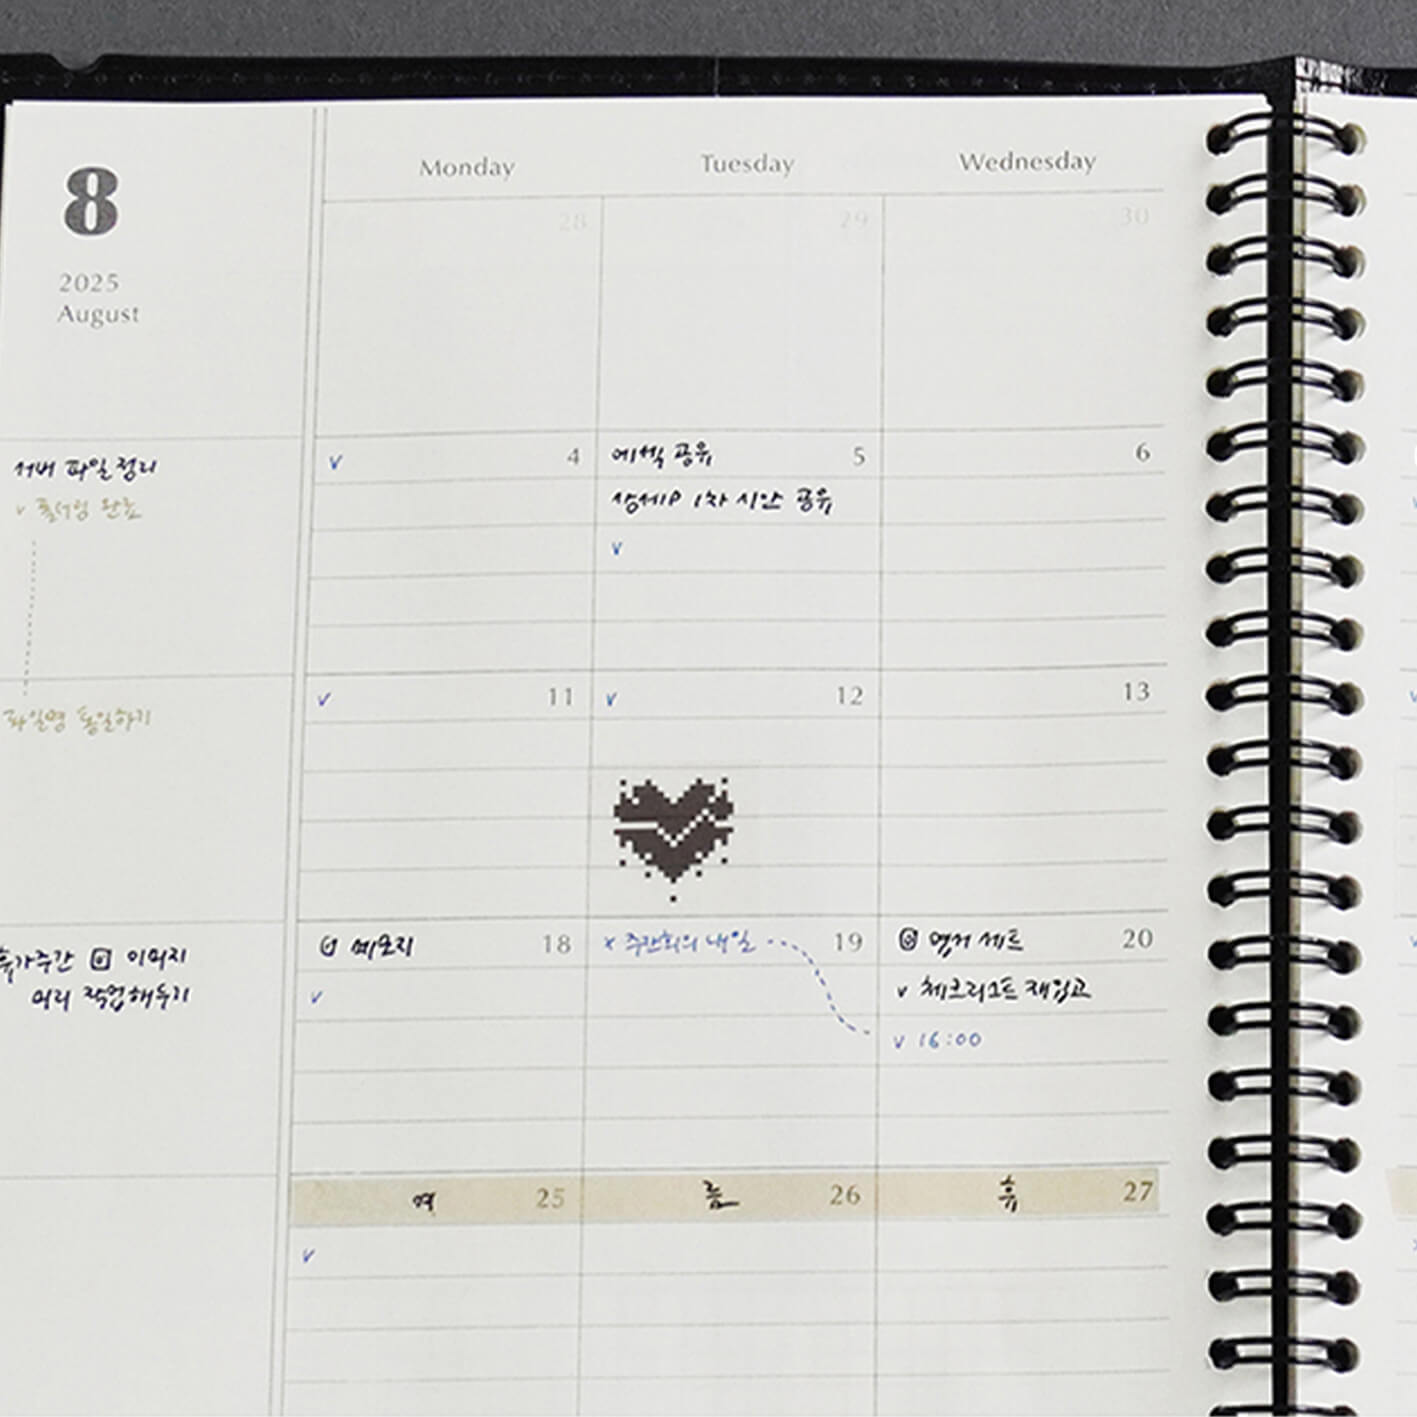 8
2025
August
Monday Tuesday Wednesday
28 29 30
서버 파일정리
v 폴더링 완료
파일명 통일하기
v 4
에첵 공유 5
상세IP 1차 시안 공유
v
6
v 11
v 12
13
휴가주간 이미지
미리 작업해두기
메모지 18
v
x 주간회의 내일 19
엽서 세트 20
v 체크리스트 재입고
v 16:00
여 25 름 26 휴 27
v